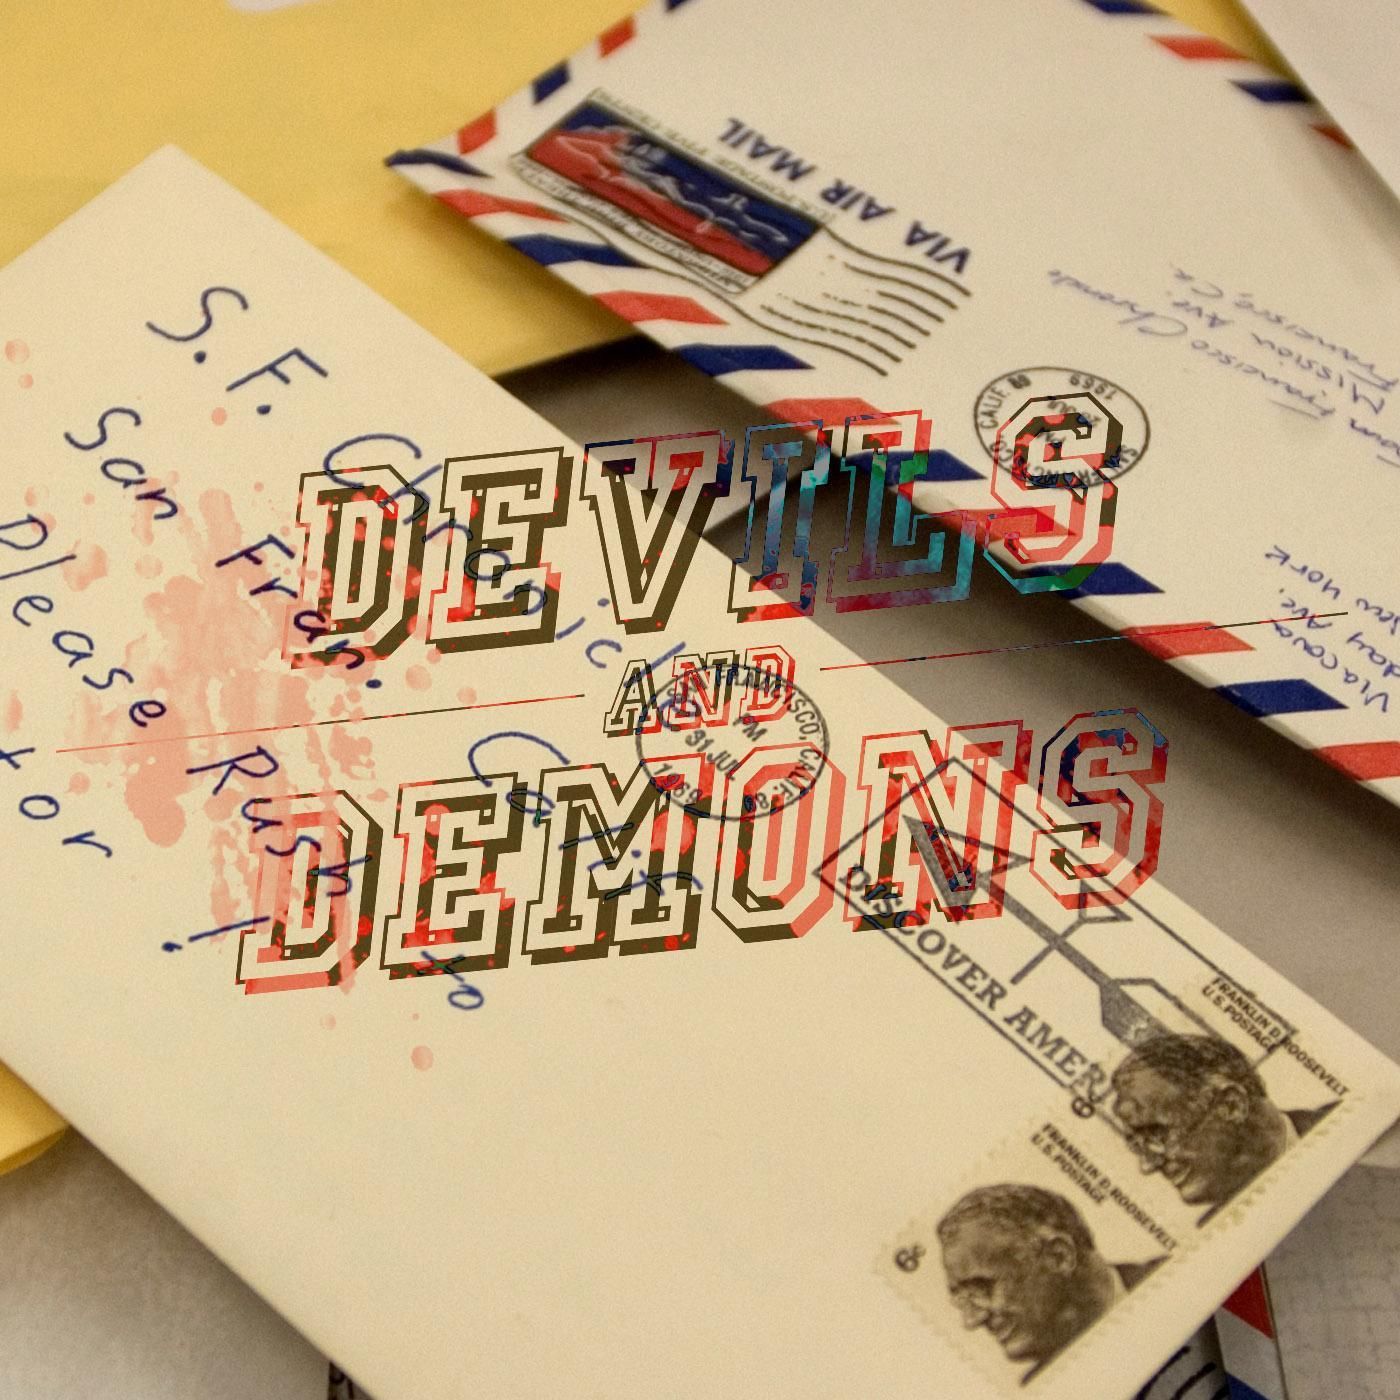 DEVILS
AND
DEMONS
S.F. Chronicle
San Fran. Calif.
Please Rush to
tor
!
SAN FRANCISCO, CALIF.
PM
31 JUL
1969
DISCOVER AMERICA
FRANKLIN D. ROOSEVELT
U.S. POSTAGE
6¢
FRANKLIN D. ROOSEVELT
U.S. POSTAGE
6¢
VIA AIR MAIL
SAN FRANCISCO, CALIF.
PM
1969
Francisco Chronicle
Mission Ave.
Francisco, Ca.